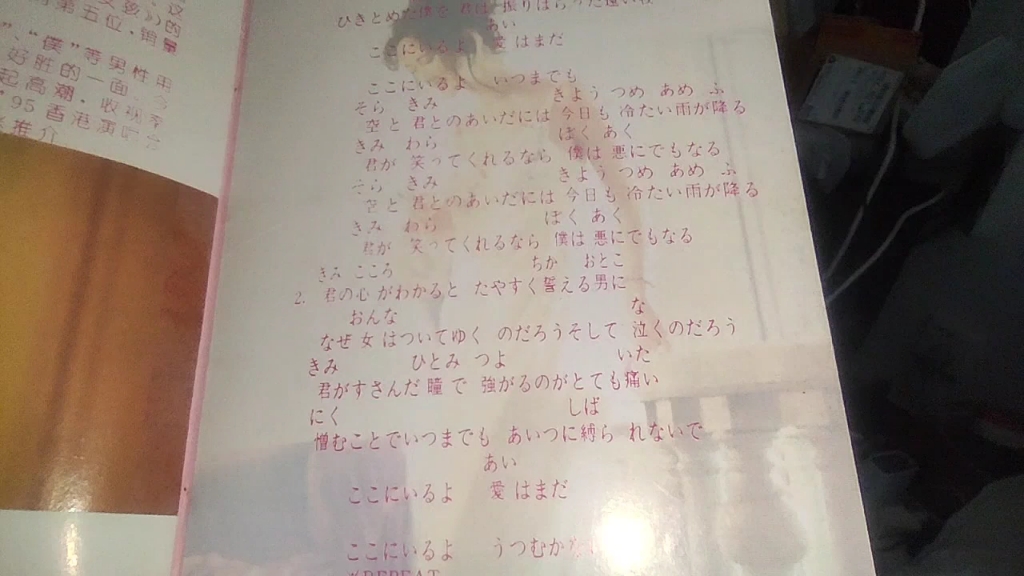 第五位,销量
、“僕”等男性用
好胜的一面,令
起高潮。收视率
95香港演唱会
推介
ひきとめた僕を 君は振りはらった遠い夜
あい
ここにいるよ 愛はまだ
ここにいるよ いつまでも
そら きみ きょう つめ あめ ふ
空と君とのあいだには今日も冷たい雨が降る
きみ わら ぼく あく
君が 笑ってくれるなら 僕は悪にでもなる
そら きみ きよう つめ あめ ふ
空と君とのあいだには今日も冷たい雨が降る
きみ わら ぼく あく
君が 笑ってくれるなら 僕は悪にでもなる
きみ こころ ちか おとこ
2. 君の心がわかると たやすく誓える男に
おんな な
なぜ女はついてゆく のだろうそして 泣くのだろう
きみ ひとみ つよ いた
君がすさんだ瞳で 強がるのがとても痛い
にく しば
憎むことでいつまでも あいつに縛ら れないで
あい
ここにいるよ 愛はまだ
ここにいるよ うつむかな
#REPEAT